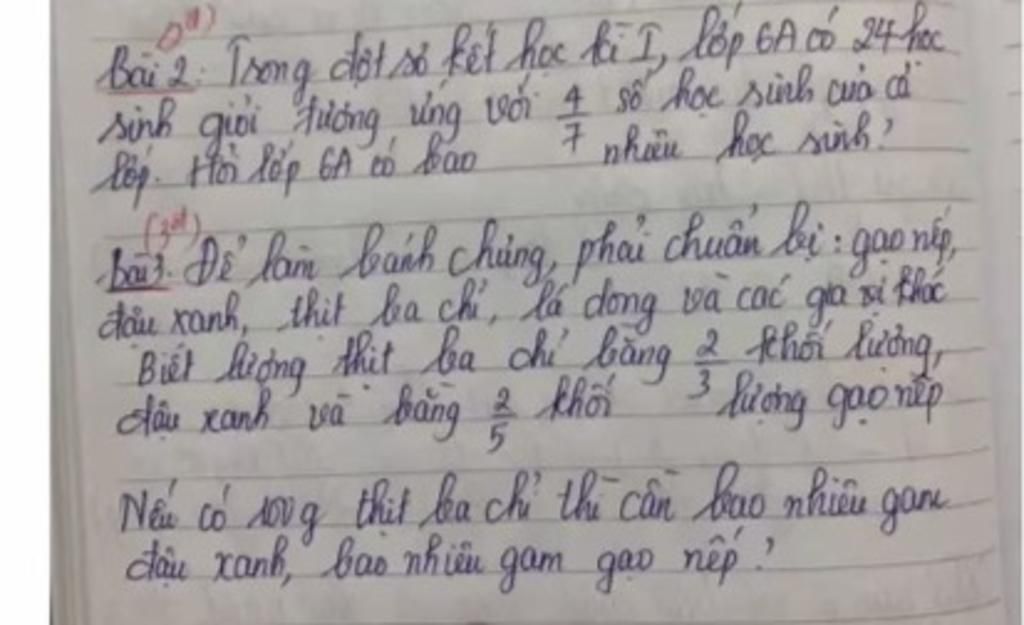 Bài 2: Trong đợt sơ kết học kì I, lớp 6A có 24 học
sinh giỏi tương ứng với 4/7 số học sinh của cả
lớp. Hỏi lớp 6A có bao nhiêu học sinh?
Bài 3. Để làm bánh chưng, phải chuẩn bị: gạo nếp,
đậu xanh, thịt ba chỉ, lá dong và các gia vị khác
Biết lượng thịt ba chỉ bằng 2/3 khối lượng,
đậu xanh và bằng 2/5 khối lượng gạo nếp
Nếu có 100g thịt ba chỉ thì cần bao nhiêu gam
đậu xanh, bao nhiêu gam gạo nếp?